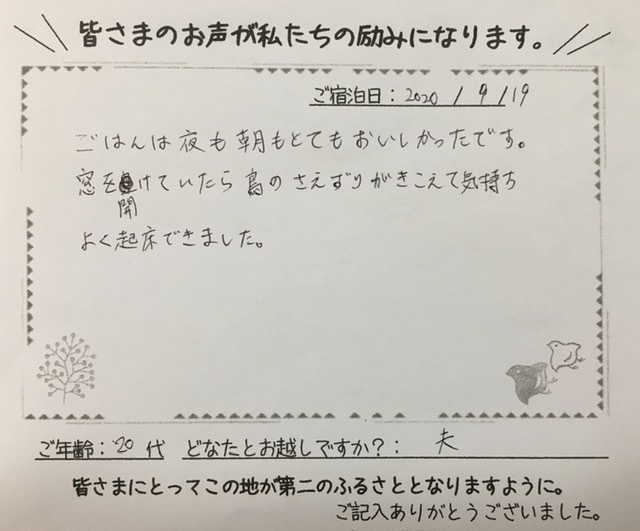 皆さまのお声が私たちの励みになります。
ご宿泊日：2020/9/19
ごはんは夜も朝もとてもおいしかったです。
窓を開けていたら鳥のさえずりがきこえて気持ち
よく起床できました。
ご年齢：20代 どなたとお越しですか？：夫
皆さまにとってこの地が第二のふるさととなりますように。
ご記入ありがとうございました。